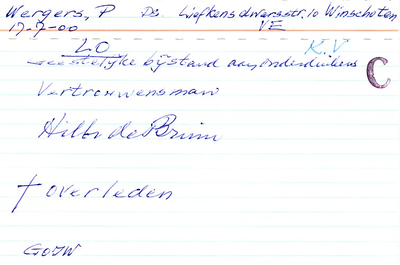 Wergers, P Ds. Liefkensdwarsstr. 10 Winschoten
17-7-00 VE
K.V
LO
Geestelijke bijstand aan onderduikers
C
Vertrouwensman
Hilbr de Bruin
† overleden
GOIW